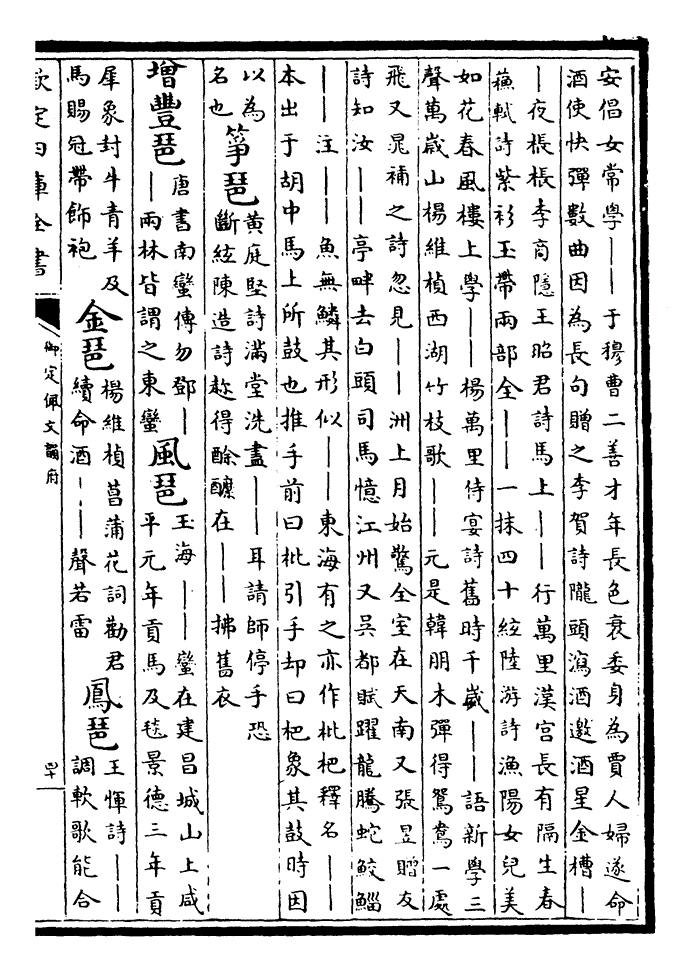 安倡女常學——于穆曹二善才年長色衰委身為賈人婦遂命
酒使快彈數曲因為長句贈之李賀詩隴頭瀉酒邀酒星金槽—
—夜棖棖李商隱王昭君詩馬上——行萬里漢宫長有隔生春
蘇軾詩紫衫玉帶兩部全——一抹四十絃陸游詩漁陽女兒美
如花春風樓上學——楊萬里侍宴詩舊時千歲——語新學三
聲萬歲山楊維楨西湖竹枝歌——元是韓朋木彈得鴛鴦一處
飛又晁補之詩忽見——洲上月始驚全室在天南又張昱贈友
詩知汝——亭畔去白頭司馬憶江州又吳都賦躍龍騰蛇鮫鯔
——注——魚無鱗其形似——東海有之亦作枇杷釋名——
本出于胡中馬上所鼓也推手前曰枇引手却曰杷象其鼓時因
以為
名也
箏琶
黄庭堅詩滿堂洗盡——耳請師停手恐
斷絃陳造詩趂得酴醿在——拂舊衣
增豐琶
唐書南蠻傳勿鄧—
—兩林皆謂之東蠻
風琶
玉海——蠻在建昌城山上咸
平元年貢馬及毯景德三年貢
犀象封牛青羊及
馬賜冠帶飾袍
金琶
楊維楨菖蒲花詞勸君
續命酒——聲若雷
鳳琶
王惲詩——
調軟歌能合
欽定四庫全書
御定佩文韻府
四十一